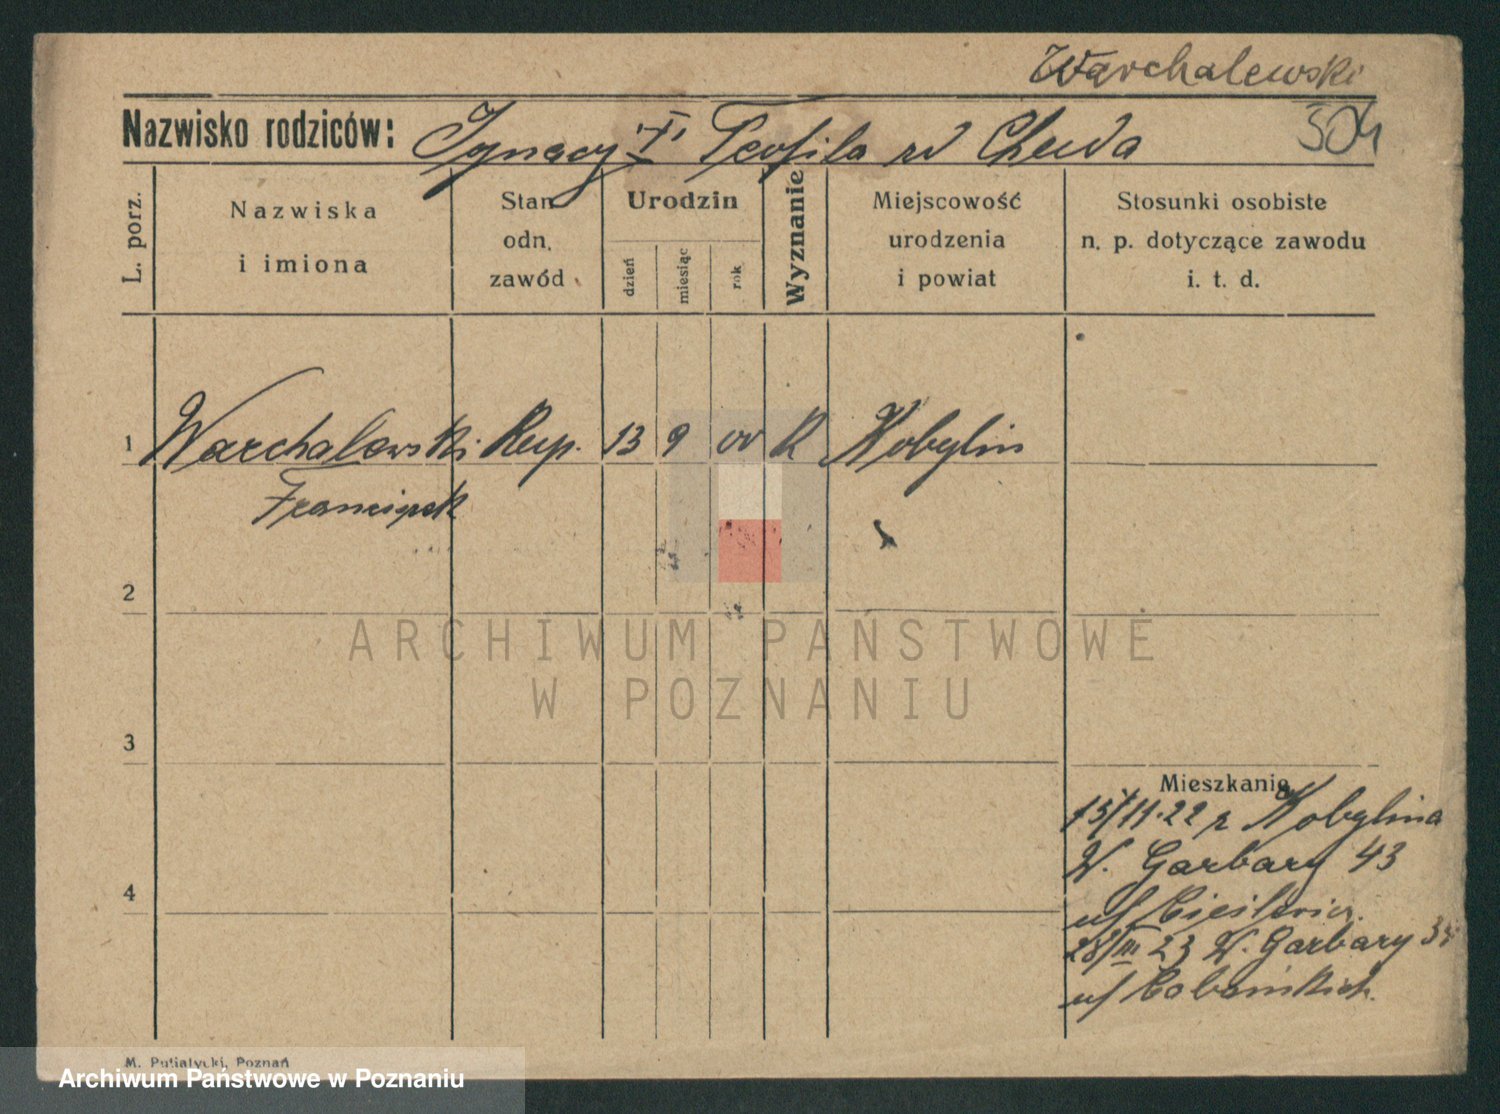 Warchalewski
Nazwisko rodziców: Ignacy i Teofila zd Cheuda 504
L. porz.
Nazwiska
i imiona
Stan
odn.
zawód
Urodzin
dzień
miesiąc
rok
Wyznanie
Miejscowość
urodzenia
i powiat
Stosunki osobiste
n. p. dotyczące zawodu
i. t. d.
1 Warchalewski Kup. 13 9 00 K Kobylin
Franciszek
2
ARCHIWUM PAŃSTWOWE
W POZNANIU
3
Mieszkanie
15/11.22 z Kobylina
4
W. Garbary 43
28/III 23 W. Garbary
M. Putiatycki, Poznań
Archiwum Państwowe w Poznaniu